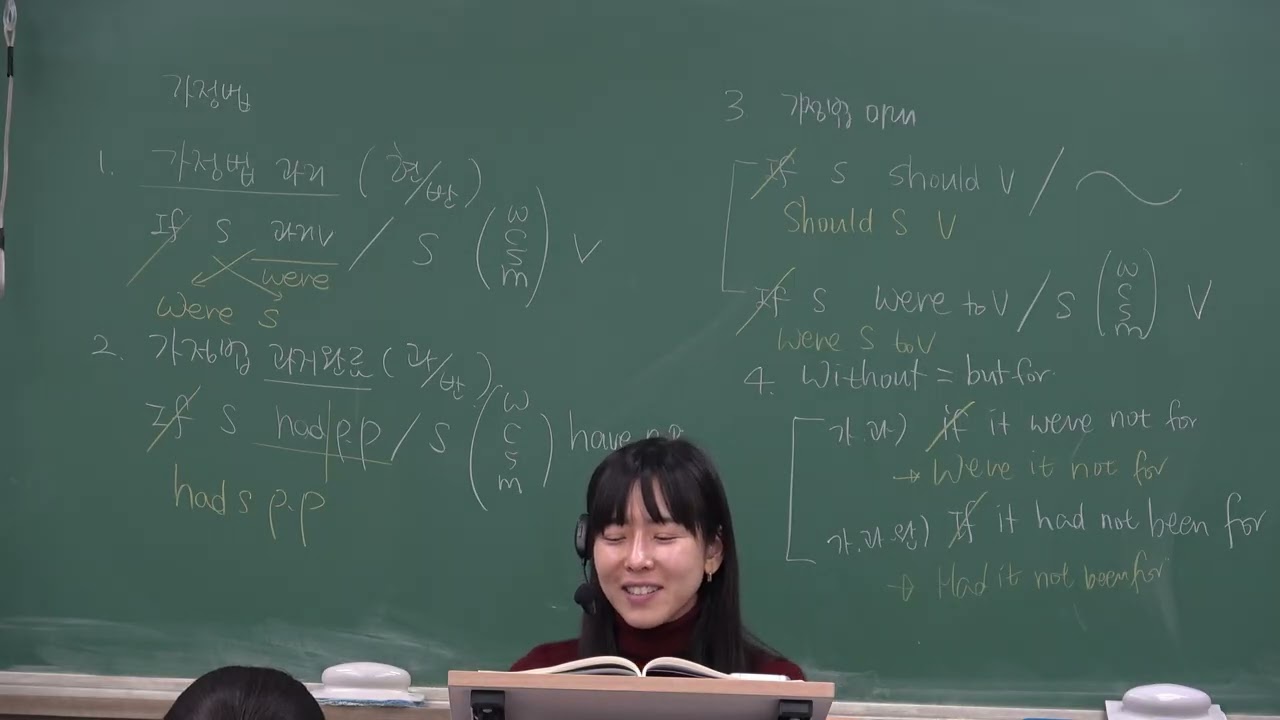 가정법
1. 가정법 과거 (현/반)
If S 과거V / S (w c s m) V
were
were S
2. 가정법 과거완료 (과/반)
If S had p.p / S (w c s m) have p.p
had s p.p
3 가정법
If S should V /
Should S V
If S were to V / S (w c s m) V
Were S to V
4. Without = but for.
가.과) if it were not for
→ Were it not for
가.과완) If it had not been for
→ Had it not been for